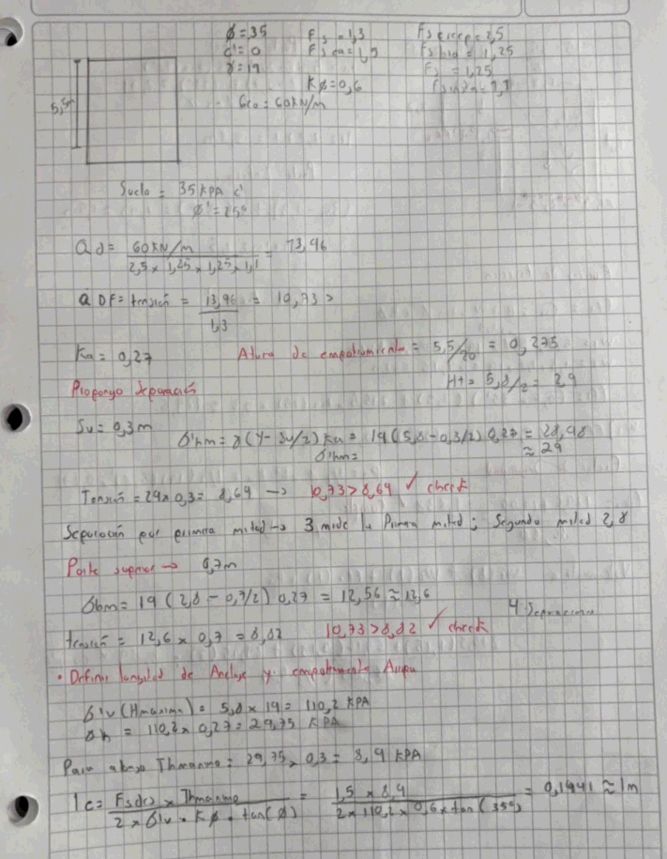 ø = 35 Fs = 1,3 Fs creep = 2,5
c' = 0 Fs ca = 1,5 Fs bio = 1,25
γ = 19 Fs = 1,25
Kø = 0,6
Geo = 60 kN/m
5,5m
Suelo = 35 KPA c'
ø' = 25°
Qd = 60 kN/m / 2,5 x 1,25 x 1,25 x 1,1 = 13,96
Q DF = tensión = 13,96 / 1,3 = 10,73 >
Ka = 0,27 Altura de empotramiento = 5,5/20 = 0,275
Propongo Separación HT = 5,8/2 = 2,9
Sv = 0,3 m σ'hm = γ (Y - Sv/2) Ka = 19 (5,8 - 0,3/2) 0,27 = 28,98
σ'hm = ≈ 29
Tensión = 29 x 0,3 = 8,69 → 10,73 > 8,69 ✓ check
Separación por primera mitad → 3 mide la Primera mitad ; Segunda mitad 2,8
Parte superior → 0,7m
σhm = 19 (2,8 - 0,7/2) 0,27 = 12,56 ≈ 12,6
4 Separaciones
tensión = 12,6 x 0,7 = 8,82 10,73 > 8,82 ✓ check
• Definir longitud de Anclaje y empotramiento
σ'v (Hmaxima) = 5,8 x 19 = 110,2 KPA
σh = 110,2 x 0,27 = 29,75 KPA
Para abajo Thmaxmo = 29,75 x 0,3 = 8,9 KPA
lc = Fsdes x Thmaxmo / 2 x σ'v • Kø • tan(ø) = 1,5 x 8,9 / 2 x 110,2 x 0,6 x tan(35°) = 0,1441 ≈ 1m